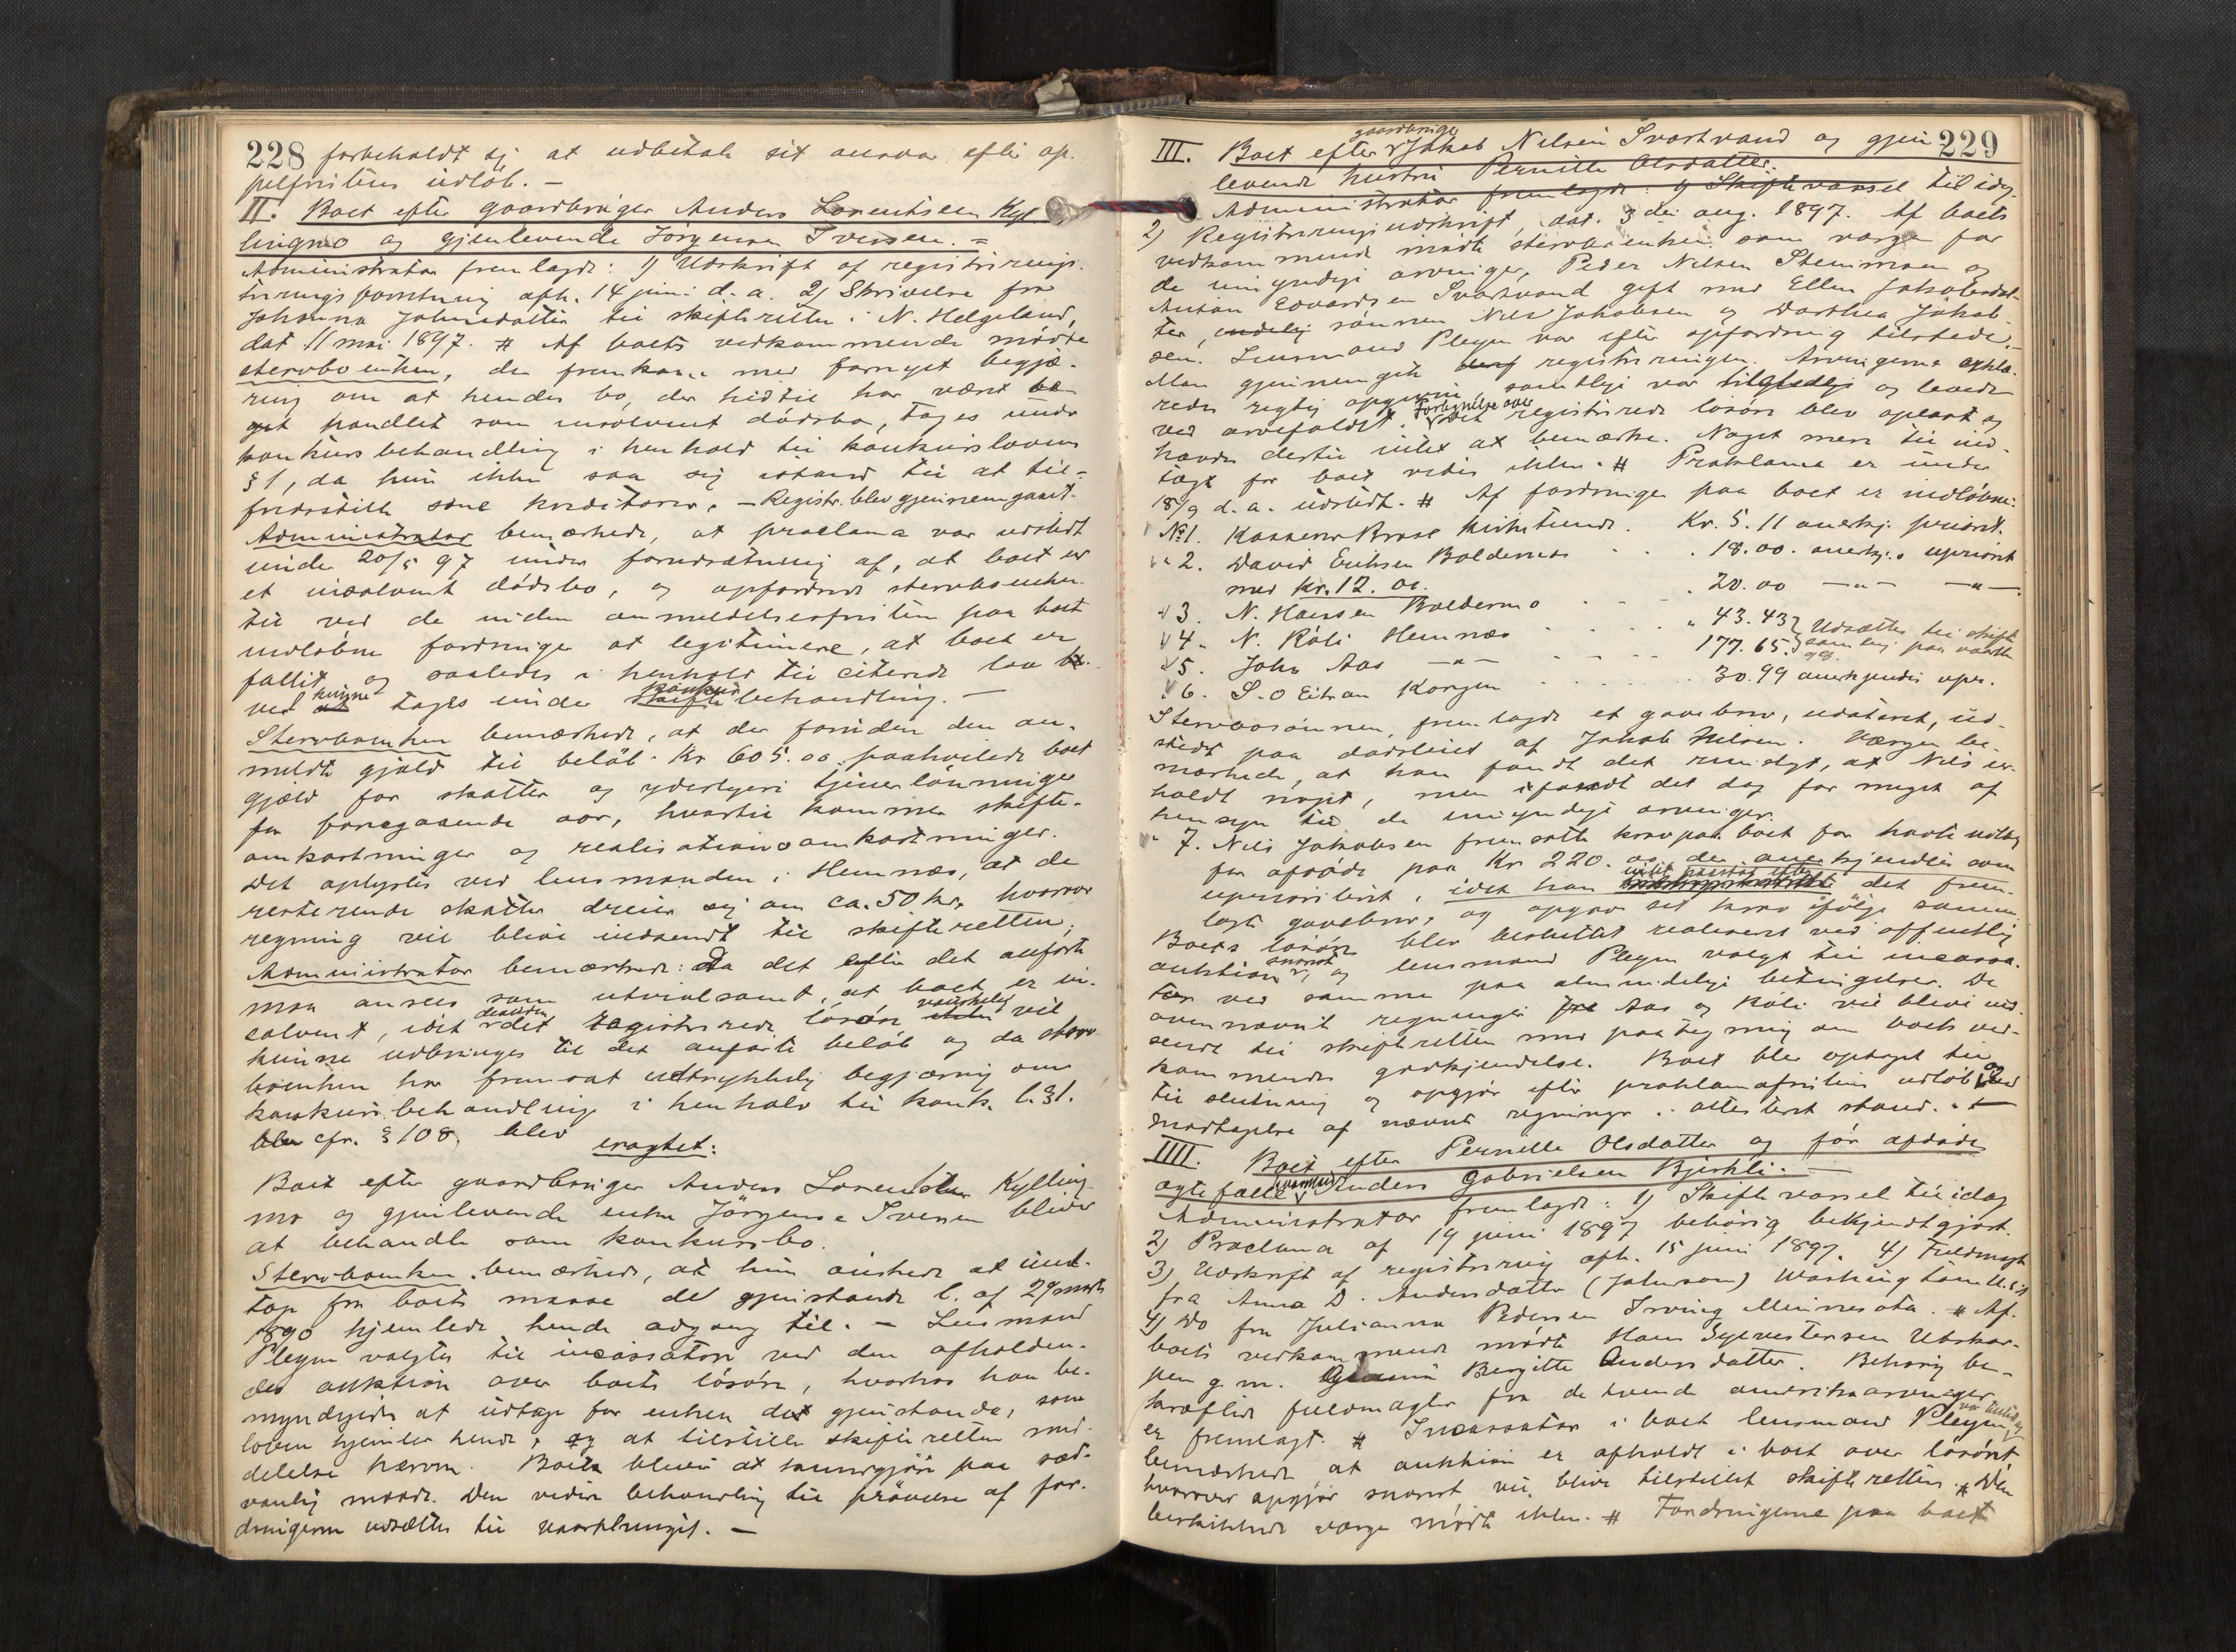 228 forbeholdt sj at udbetale sit ansvar efter ap-
pelfristens udlöb. —
II. Boet efter gaardbruger Anders Lorentsen Kyl
lingmo og gjenlevende Jörgensen Iversen. =
Administrator fremlagde: 1) Udskrift af registrerings-
forretning afh. 14 juni d. a. 2) Skrivelse fra
Johanna Johnsdatter til skifteretten i N. Helgeland,
dat 11 mai 1897. # Af boets vedkommende mödte
stervboenken, der fremkom med fornyet begjæ-
ring om at hendes bo, der hidtil har været be
handlet som insolvent dödsbo, tages under
konkursbehandling i henhold til konkurslovens
§1, da hun ikke saa sig istand til at til-
fredsstille sine kreditorer. — Registr. blev gjennemgaaet.
Administrator bemærkede, at proclama var udstedt
under 20/5 97 under forudsætning af, at boet er
et insolvent dödsbo, og opfordrede stervboenken
til ved de inden anmeldelsesfristen paa boet
indlöbne fordringer at legitimere, at boet er
fallit og saaledes i henhold til citerede lov
ved kunne tages under konkurs behandling. —
Stervboenken bemærkede, at der foruden den an-
meldte gjæld til belöb Kr 605.00 paahvilede boet
gjæld for skatter og yderligere tjenerlönninger
fra foregaaende aar, hvortil kommer skifte-
omkostninger og realisationsomkostninger.
Det oplystes ved lensmanden i Hemnæs, at de
resterende skatter dreier sig om ca. 50 kr. hvorover
regning vil blive indsendt til skifteretten.
Administrator bemærkede: Da det efter det anförte
maa ansees som utvivlsomt, at boet er in-
solvent, idet desuden det registrerede lösöre vanskelig vil
kunne udbringes til det anförte belöb og da sterv-
boenken har fremsat udtrykkelig begjæring om
konkursbehandling i henhold til konk. l. §1.
cfr. §108, blev
eragtet:
Boet efter gaardbruger Anders Lorentsen Kylling
mo og gjenlevende enke Jörgensen Iversen bliver
at behandle som konkursbo.
Stervboenken bemærkede, at hun önskede at ud-
tage fra boets masse de gjenstande l. af 29 marts
1890 hjemlede hende adgang til. — Lensmand
Pleym valgtes til incassator ved den afholden-
des auktion over boets lösöre, hvorhos han be-
myndigedes at udtage for enken de gjenstande, som
loven hjemler hende, og at tilstille skifteretten med-
delelse herom. Boet bliver at kundgjöre paa sæd-
vanlig maade. Den videre behandling til prövelse af for-
dringerne udsættes til vaarthinget. —
III. Boet efter gaardbruger Jakob Nilsen Svartvand og gjen 229
levende hustru Pernille Olsdatter.
Administrator fremlagde: 1) Skiftevarsel til idag
2) Registreringsudskrift, dat. 3die aug. 1897. Af boets
vedkommende mödte stervboenken som værge for
de umyndige arvinger, Peder Nilsen Stenmoen og
Anton Edvardsen Svartvand gift med Ellen Jakobsdat-
ter, sönnen Nils Jakobsen og Dorthea Jakob-
sen. Lensmand Pleym var efter opfordring tilstede.
Man gjennemgik registreringen. Arvingerne erklæ-
redes rigtig opgivne samtlige var tilstede og levede
ved arvefaldet. Fortegnelse over det registrerede lösöre blev oplæst og
havde dertil intet at bemærke. Noget mere til ind-
tægt for boet vides ikke. # Proklama er under
18/9 d. a. udstedt. # Af fordringer paa boet er indlöbne:
No 1. Korgens Kirketiende. Kr. 5.11 anerkj. priorit.
" 2. David Eriksen Boldermo . . . 18.00. anerkj. uprior.
med kr. 12.00
" 3. N. Hansen Boldermo . . . 20.00 —"— —"—
" 4. N. Röli Hemnæs . . . . " 43.43 } Udsættes til skifte
" 5. John Aas —"— . . . . 177.65 } samling paa vaarth
" 6. S. O Eitran Korgen . . . . 30.99 anerkjendes upr.
Stervbosönnen fremlagde et gavebrev, udateret, ud-
stedt paa dödsleiet af Jakob Nilsen. Værgen be-
mærkede, at han fandt det rimeligt, at Nils er-
holdt noget, men fandt det dog for meget af
hensyn til de umyndige arvinger.
" 7. Nils Jakobsen fremsatte krav paa boet for havte udlæg
for afdöde paa Kr 220.00 der anerkjendtes som
uprioriteret, idet han det frem-
lagte gavebrev, og opgav sit krav ifölge samme.
Boets lösöre blev besluttet realiseret ved offentlig
auktion snarest, og lensmand Pleym valgt til incassa-
tor ved samme paa almindelige betingelser. De
ovennævnte regninger fra Aas og Röli vil blive ind-
sendt til skifteretten med paategning om boets ved-
kommendes godkjendelse. Boet blev optaget til
til slutning og opgjör efter proklamafristens udlöb og ved
modtagelse af nævnte regninger i attesteret stand. —
IIII. Boet efter Pernille Olsdatter og för afdöde
ægtefælle Anders Gabrielsen Bjerkli. —
Administrator fremlagde: 1) Skiftevarsel til idag
2) Proclama af 19 juni 1897 behörig bekjendtgjort.
3) Udskrift af registrering afh. 15 juni 1897. 4) Fuldmagt
fra Anna D. Andersdatter (Johnson) Washington U.S.
4) Do fra Julianna Pedersen Irving Minnesota. # Af
boets vedkommende mödte Hans Sylvestersen Utskar-
pen g. m. Bergitte Andersdatter. Behörig be-
kræftede fuldmagter fra de tvende amerikaarvinger
er fremlagt. # Incassator i boet lensmand Pleym, var tilstede og
bemærkede at auktion er afholdt i boet over lösöret,
hvorover opgjör snarest vil blive tilstillet skifteretten. # Den
beskikkede værge mödte ikke. # Fordringerne paa boet